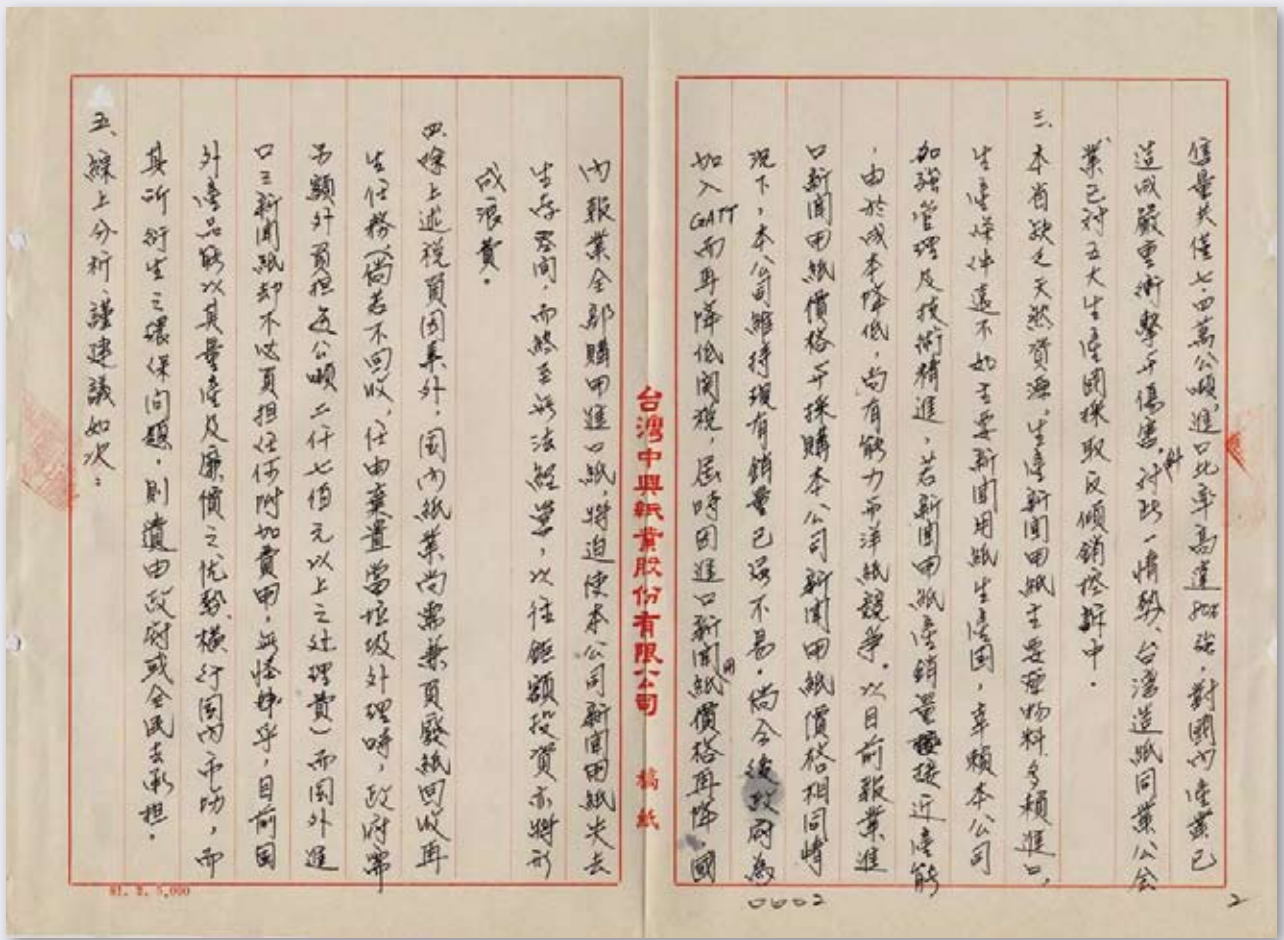 售量共僅七·四萬公噸,進口比率高達80%強,對國內產業已
造成嚴重衝擊與傷害,針對此一情勢、台灣造紙同業公會
業已對五大生產國採取反傾銷控訴中。
三、本省缺乏天然資源,生產新聞用紙主要原物料多賴進口,
生產條件遠不如主要新聞用紙生產國,幸賴本公司
加強管理及技術精進,若新聞用紙產銷量接近產能
,由於成本降低,尚有能力而洋紙競爭。以目前報業進
口新聞用紙價格與採購本公司新聞用紙價格相同情
況下,本公司維持現有銷量已屬不易。倘今後政府為
加入GATT而再降低関稅,屆時因進口新聞用紙價格再降,國
內報業全部購用進口紙,將迫使本公司新聞用紙失去
生存空間,而終至無法經營,以往鉅額投資亦將形
成浪費。
四、除上述稅負因素外,國內紙業尚需兼負廢紙回收再
生任務(倘若不回收,任由棄置當垃圾外理時,政府需
另額外負担每公噸二仟七佰元以上之处理費)而國外進
口之新聞紙却不必負担任何附加費用,無怪乎,目前國
外產品能以其量產及廉價之优勢,橫行國內市場,而
其所衍生之環保問題,則遺由政府或全民去承担。
五、綜上分析,謹建議如次:
台灣中興紙業股份有限公司 稿紙
81. 2. 5,000
0002
2